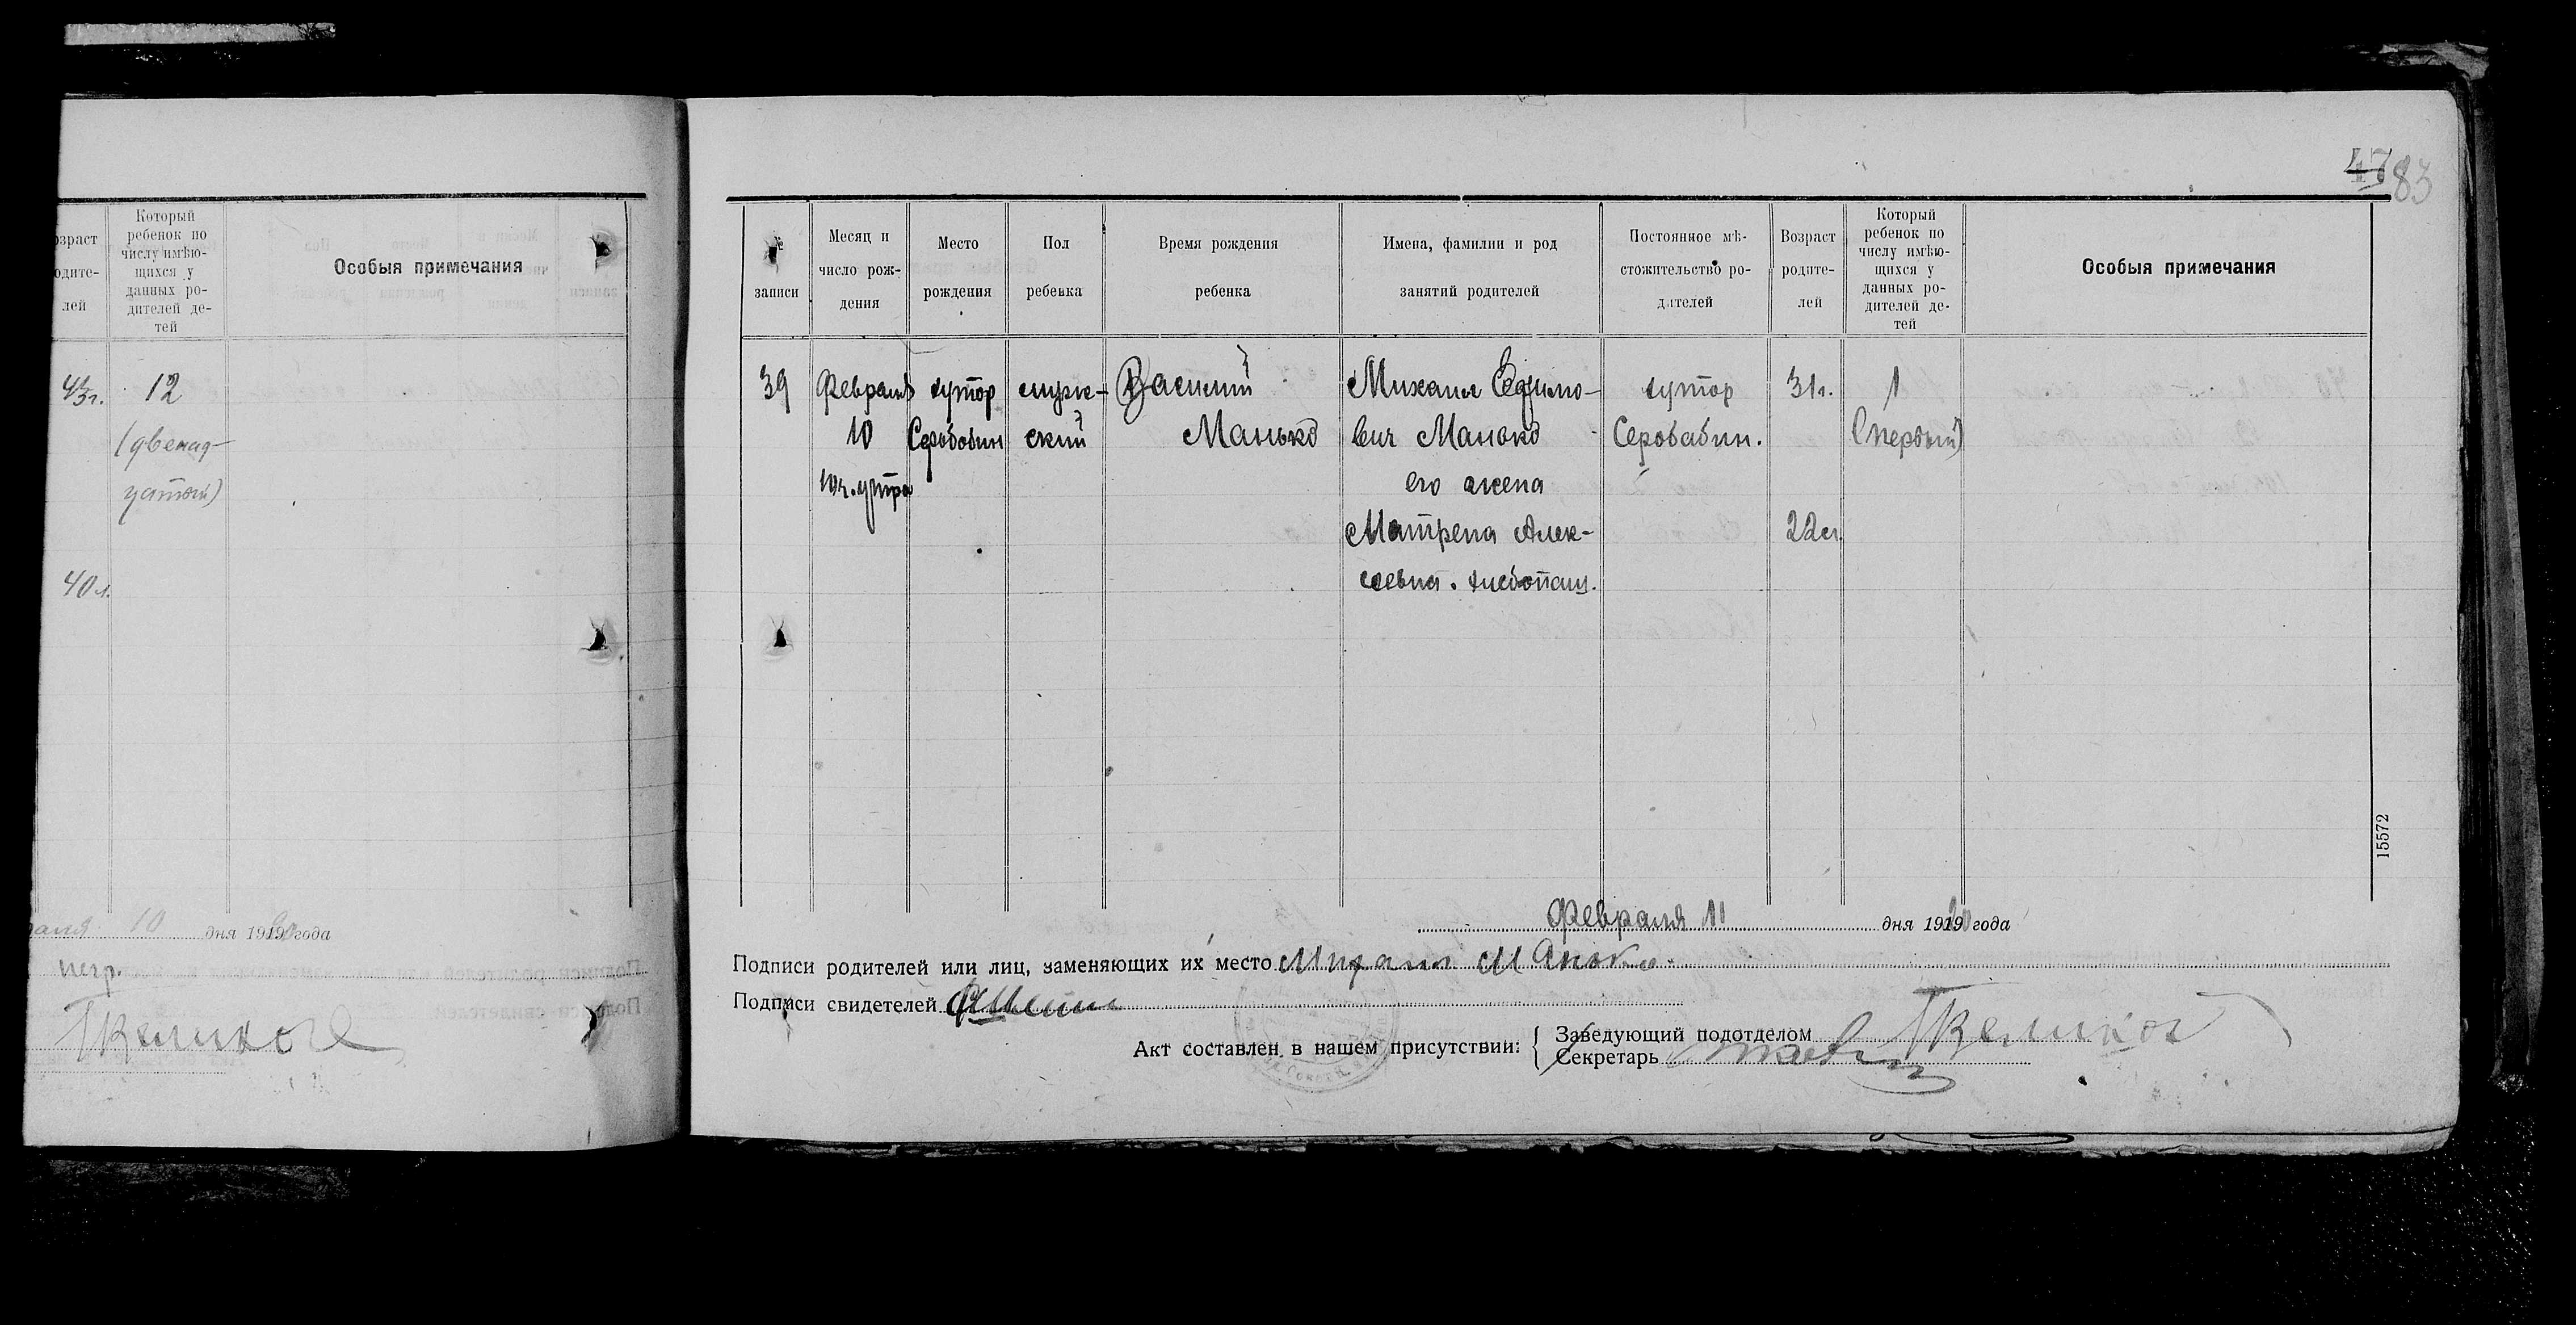 4783
озраст
одите-
лей
Который
ребенок по
числу имѣю-
щихся у
данных ро-
дителей де-
тей
Особыя примечания
43г.
12
(двенад-
цатый)
40л.
10 дня 1919 20 года
негр.
№
записи
Месяц и
число рож-
дения
Место
рождения
Пол
ребенка
Время рождения
ребенка
Имена, фамилии и род
занятий родителей
Постоянное мѣ-
стожительство ро-
дителей
Возраст
родите-
лей
Который
ребенок по
числу имѣю-
щихся у
данных ро-
дителей де-
тей
Особыя примечания
39
Февраля
10
10ч. утра
хутор
Серобабин
мужс-
ский
Василий
Манько
Михаил Ефимо-
вич Манько
его жена
Матрена Алек-
сеевна. хлебопаш.
хутор
Серобабин.
31г.
22л.
1
(первый)
15572
Февраля 11 дня 1919 20 года
Подписи родителей или лиц, заменяющих их место Михаил Манько
Подписи свидетелей
Акт составлен в нашем присутствии:
Заведующий подотделом
Секретарь